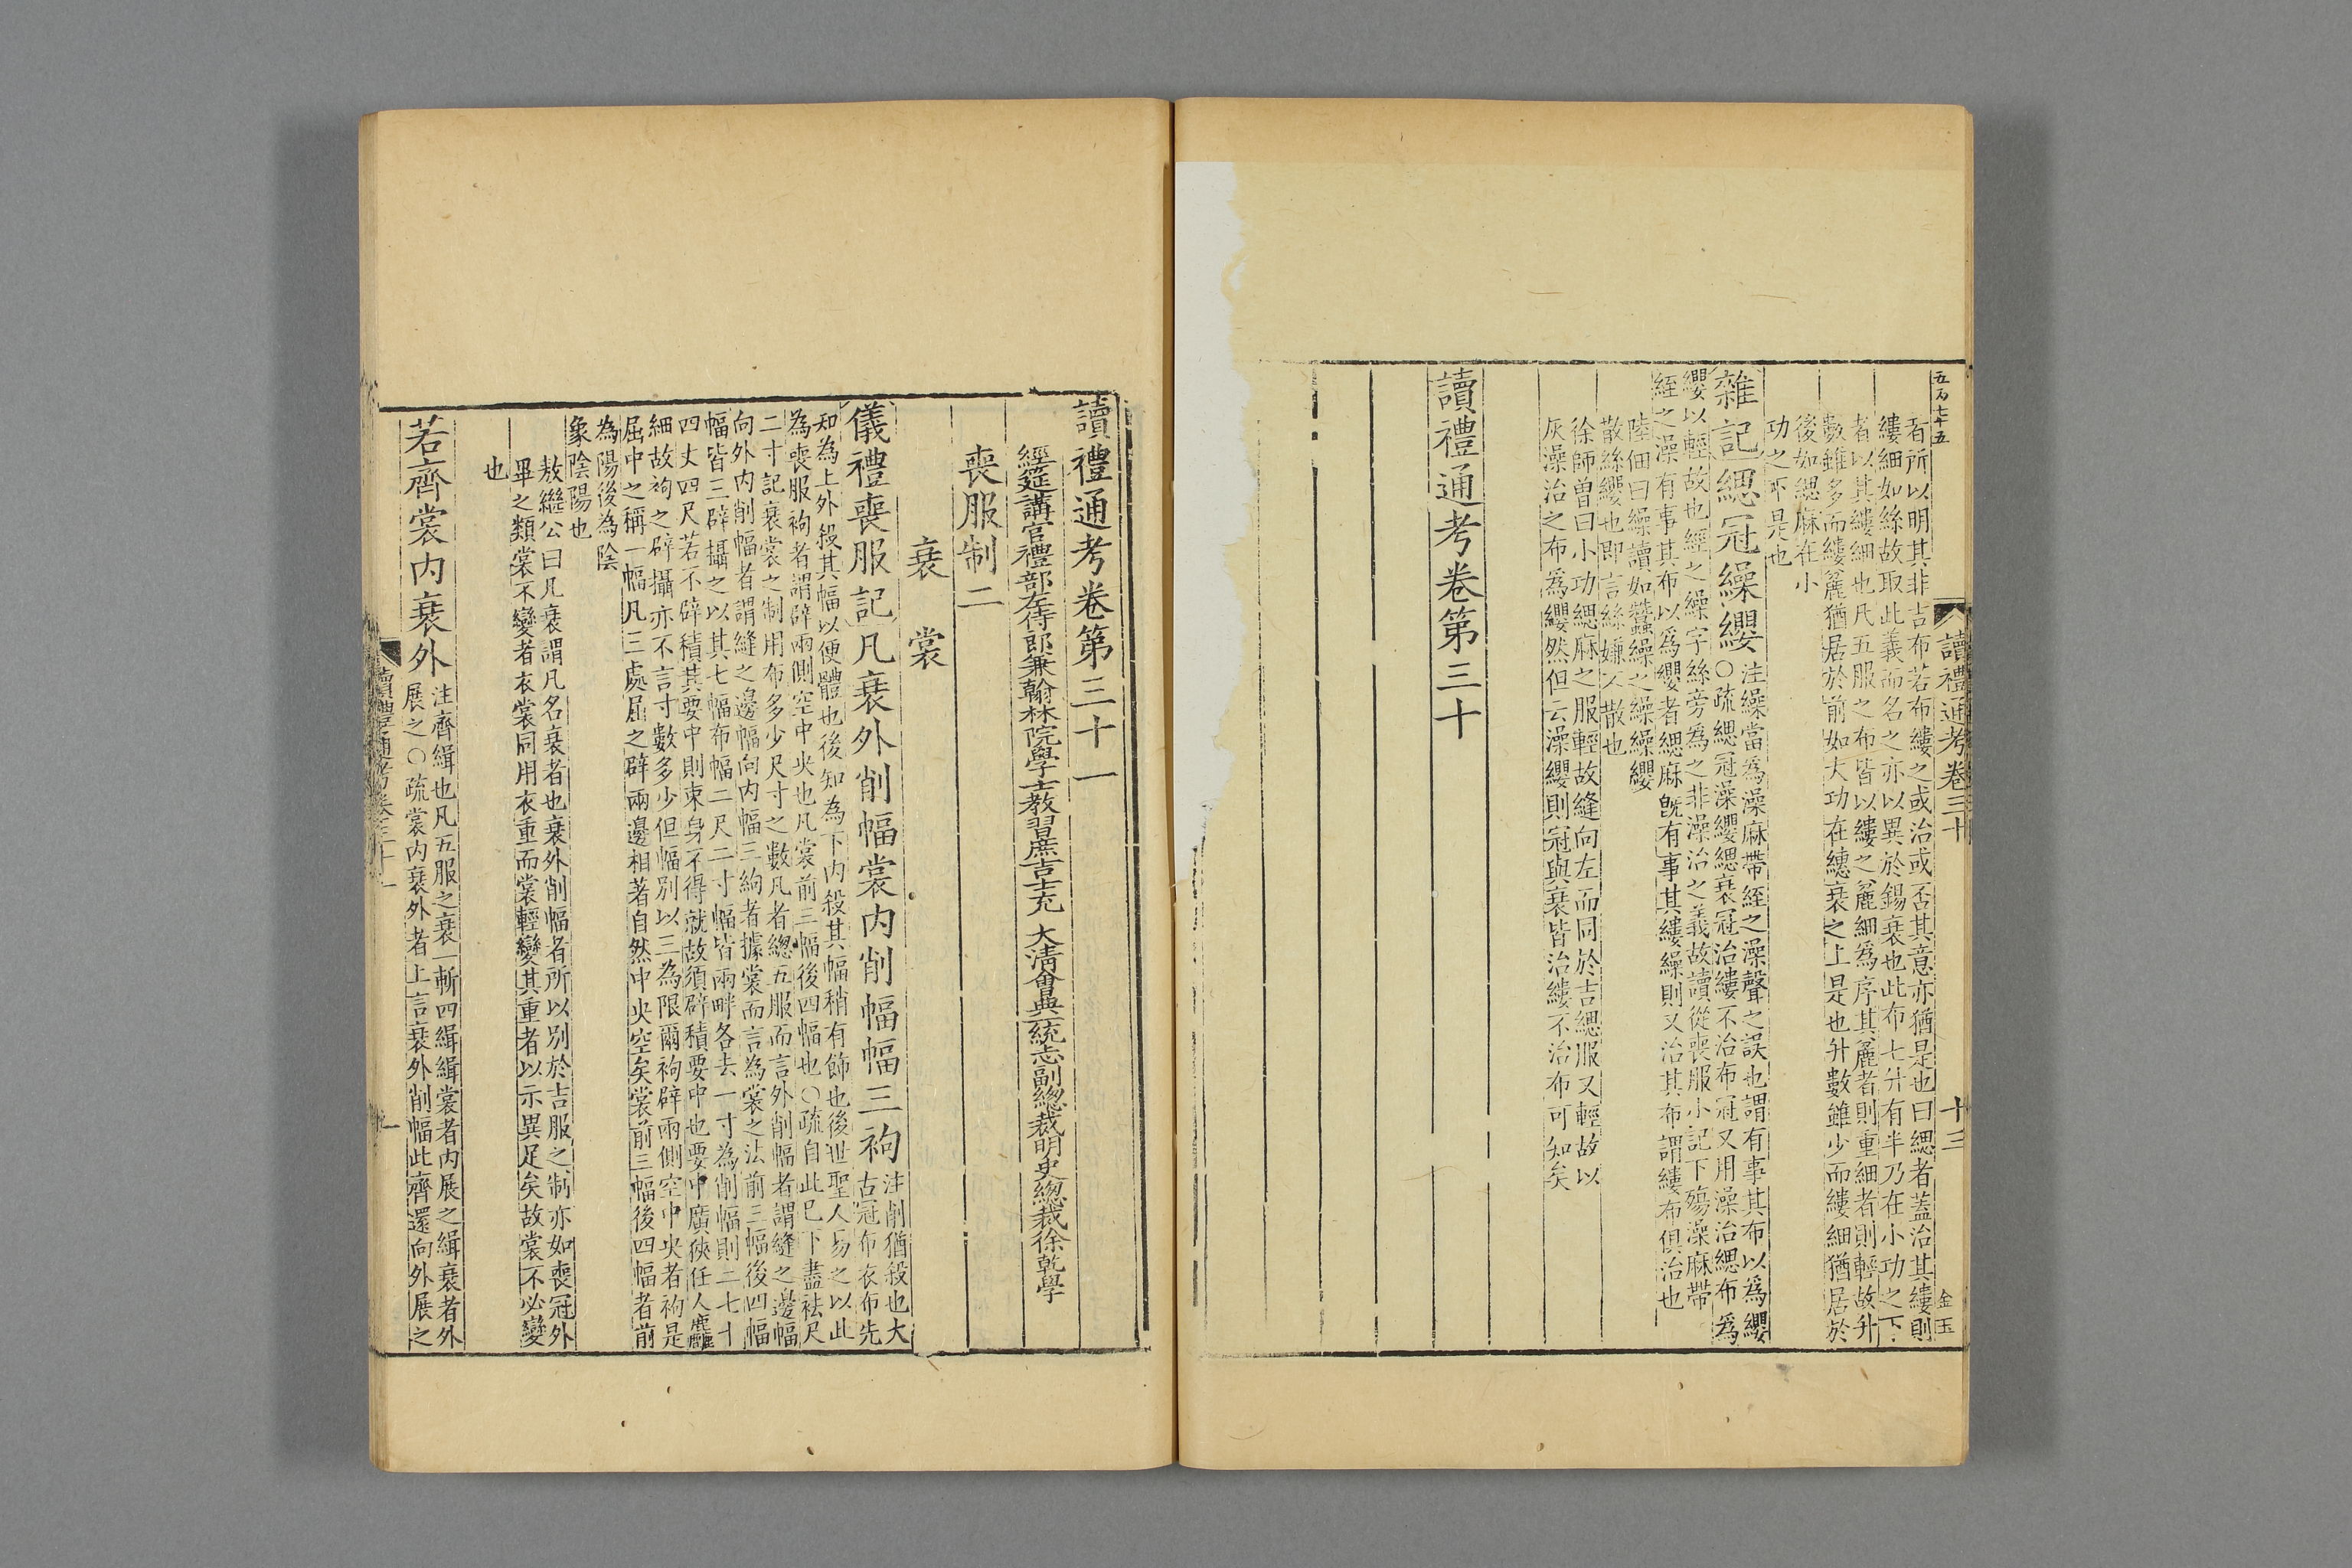 五百七十五
讀禮通考卷三十
十三
金玉
者所以明其非吉布若布縷之或治或否其意亦猶是也曰緦者蓋治其縷則
縷細如絲故取此義而名之亦以異於錫衰也此布七升有半乃在小功之下
者以其縷細也凡五服之布皆以縷之麄細爲序其麄者則重細者則輕故升
數雖多而縷麄猶居於前如大功在繐衰之上是也升數雖少而縷細猶居於
後如緦麻在小
功之下是也
雜記緦冠繰纓
注繰當為澡麻帶絰之澡聲之誤也謂有事其布以爲纓
○疏緦冠澡纓緦衰冠治縷不治布冠又用澡治緦布爲
纓以輕故也經之繰字絲旁為之非澡治之義故讀從喪服小記下殤澡麻帶
絰之澡有事其布以爲纓者緦麻旣有事其縷繰則又治其布謂縷布俱治也
陸佃曰繰讀如蠶繰之繰繰纓
散絲纓也即言絲嫌不散也
徐師曾曰小功緦麻之服輕故縫向左而同於吉緦服又輕故以
灰澡治之布爲纓然但云澡纓則冠與衰皆治縷不治布可知矣
讀禮通考卷第三十
讀禮通考卷第三十一
經筵講官禮部左侍郎兼翰林院學士教習庶吉士充 大清會典一統志副總裁明史總裁徐乾學
喪服制二
衰 裳
儀禮喪服記凡衰外削幅裳内削幅幅三袧
注削猶殺也大
古冠布衣布先
知為上外殺其幅以便體也後知為下内殺其幅稍有飾也後世聖人易之以此
為喪服袧者謂辟兩側空中央也凡裳前三幅後四幅也○疏自此已下盡袪尺
二寸記衰裳之制用布多少尺寸之數凡者總五服而言外削幅者謂縫之邊幅
向外内削幅者謂縫之邊幅向内幅三袧者據裳而言為裳之法前三幅後四幅
幅皆三辟攝之以其七幅布幅二尺二寸幅皆兩畔各去一寸為削幅則二七十
四丈四尺若不辟積其要中則束身不得就故須辟積要中也要中廣狹任人麤
細故袧之辟攝亦不言寸數多少但幅別以三為限爾袧辟兩側空中央者袧是
屈中之稱一幅凡三處屈之辟兩邊相著自然中央空矣裳前三幅後四幅者前
為陽後為陰
象陰陽也
敖繼公曰凡衰謂凡名衰者也衰外削幅者所以別於吉服之制亦如喪冠外
畢之類裳不變者衣裳同用衣重而裳輕變其重者以示異足矣故裳不必變
也
若齊裳内衰外
注齊緝也凡五服之衰一斬四緝緝裳者内展之緝衰者外
展之○疏裳内衰外者上言衰外削幅此齊還向外展之
讀禮通考卷三十一
一